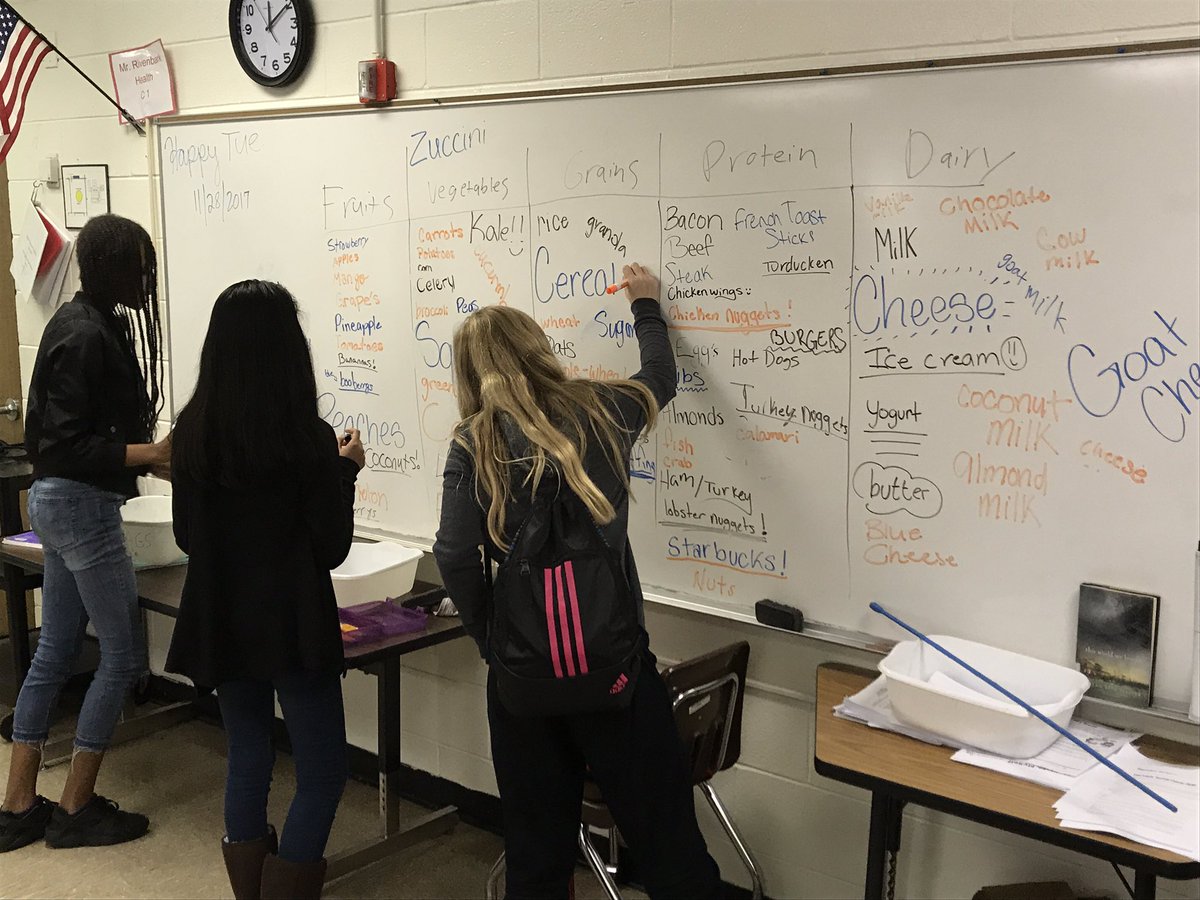 Mr. Rivenbark
Health
C-1
Happy Tue
11/28/2017
Fruits
Strawberry
Apples
Mango
Grape's
Pineapple
Tomatoes
Bananas!
booberries
Peaches
Coconuts!
Zuccini
Vegetables
Carrots
Potatoes
corn
Celery
broccoli
Peas
Kale!!
green
Grains
rice
granola
Cereal
wheat
Sugar
Oats
Protein
Bacon
Beef
Steak
Chicken wings
Chicken Nuggets!
Egg's
Almonds
fish
crab
Ham/Turkey
lobster nuggets!
Starbucks!
Nuts
French Toast
Sticks
Turducken
BURGERS
Hot Dogs
Turkey Nuggets
calamari
Dairy
Vanilla
Milk
Chocolate
Milk
Milk
Cow
Milk
goat
milk
Cheese
Ice cream
Goat
Yogurt
Coconut
Milk
cheese
butter
Almond
milk
Blue
Cheese